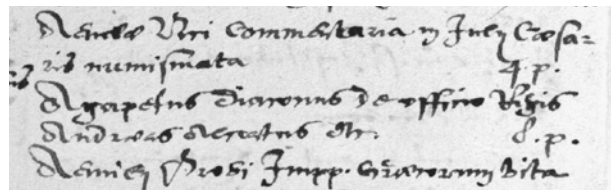 Aeneae Vici Commentaria in Julij Caesa-
ris numismata 4 p.
Agapetus Diaconus de officio Regis
Andreas Alciatus etc. 8. p.
Aemilij Probi Impp. Graecorum vita